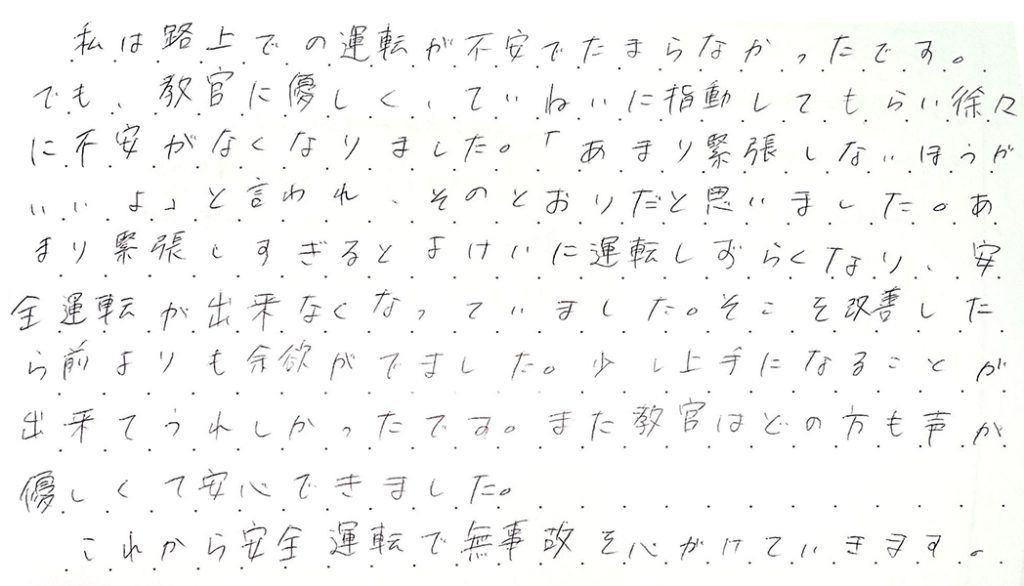 私は路上での運転が不安でたまらなかったです。
でも、教官に優しく、ていねいに指動してもらい徐々
に不安がなくなりました。「あまり緊張しないほうが
いいよ」と言われ、そのとおりだと思いました。あ
まり緊張しすぎるとよけいに運転しずらくなり、安
全運転が出来なくなっていました。そこを改善した
ら前よりも余欲がでました。少し上手になることが
出来てうれしかったです。また教官はどの方も声が
優しくて安心できました。
これから安全運転で無事故を心がけていきます。